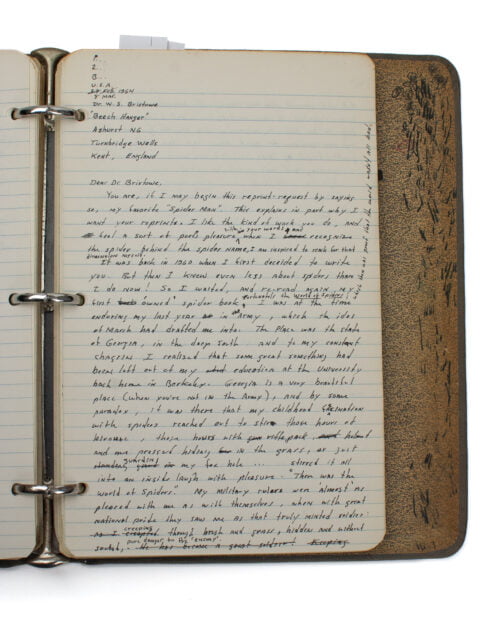 1.
2.
3.
U.S.A
24 Feb. 1964
5 Mar.
Dr. W. S. Bristowe
"Beech Hanger"
Ashurst NG
Turnbridge Wells
Kent, England
Dear Dr. Bristowe,
You are, if I may begin this reprint-request by saying
so, my favorite "Spider Man". This explains in part why I
want your reprints. I like the kind of work you do, and
feel a sort of pure pleasure when I recognize
with your words and
the spider behind the spider name, I am inspired to reach for that
It was back in 1960 when I first decided to write
you. But then I knew even less about spiders than
I do now! So I waited, and re-read again my
first owned spider book, I was at the time
the World of Spiders
enduring my last year in Army, which the ides
of March had drafted me into. The Place was the state
of Georgia, in the deep South and to my constant
chagrin I realized that some great something had
been left out of my education at the University
back home in Berkeley. Georgia is a very beautiful
place (when you're not in the Army), and by some
paradox, it was there that my childhood
with spiders reached out to stir those hours of
those hours with rifle, pack, helmet
and me pressed hiding in the grass, or just
guarding my fox hole ... stirred it all
into an inside laugh with pleasure. "Then was the
World of Spiders". My military rulers were almost as
pleased with me as with themselves, when with great
national pride they saw me as that truly minted soldier
creeping
as I through brush and grass, hidden and without
pure danger to the "enemy".
sound, He has become a great soldier! Keeping